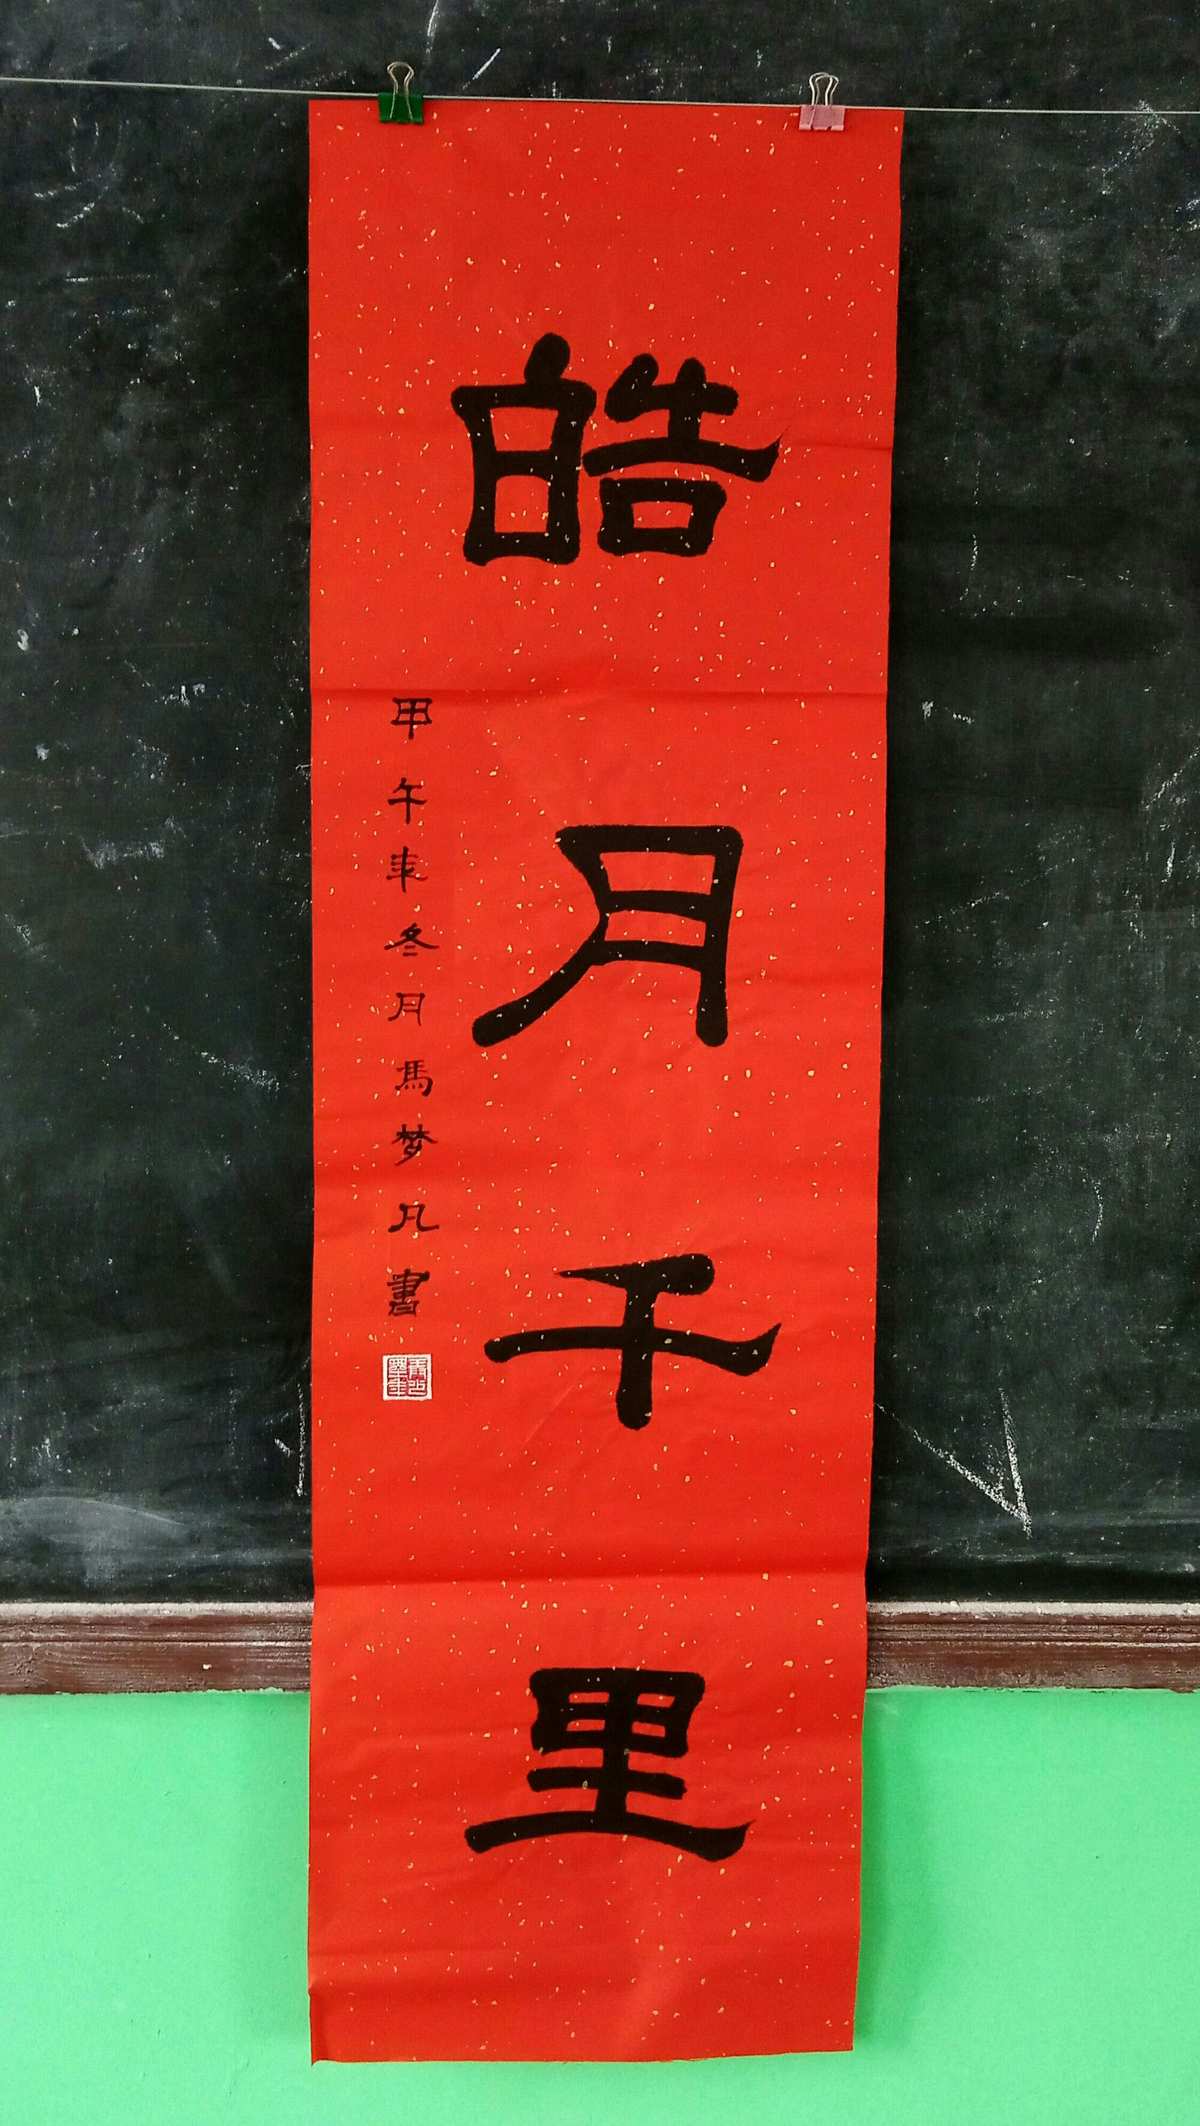 皓月千里
甲午年冬月馬梦凡書